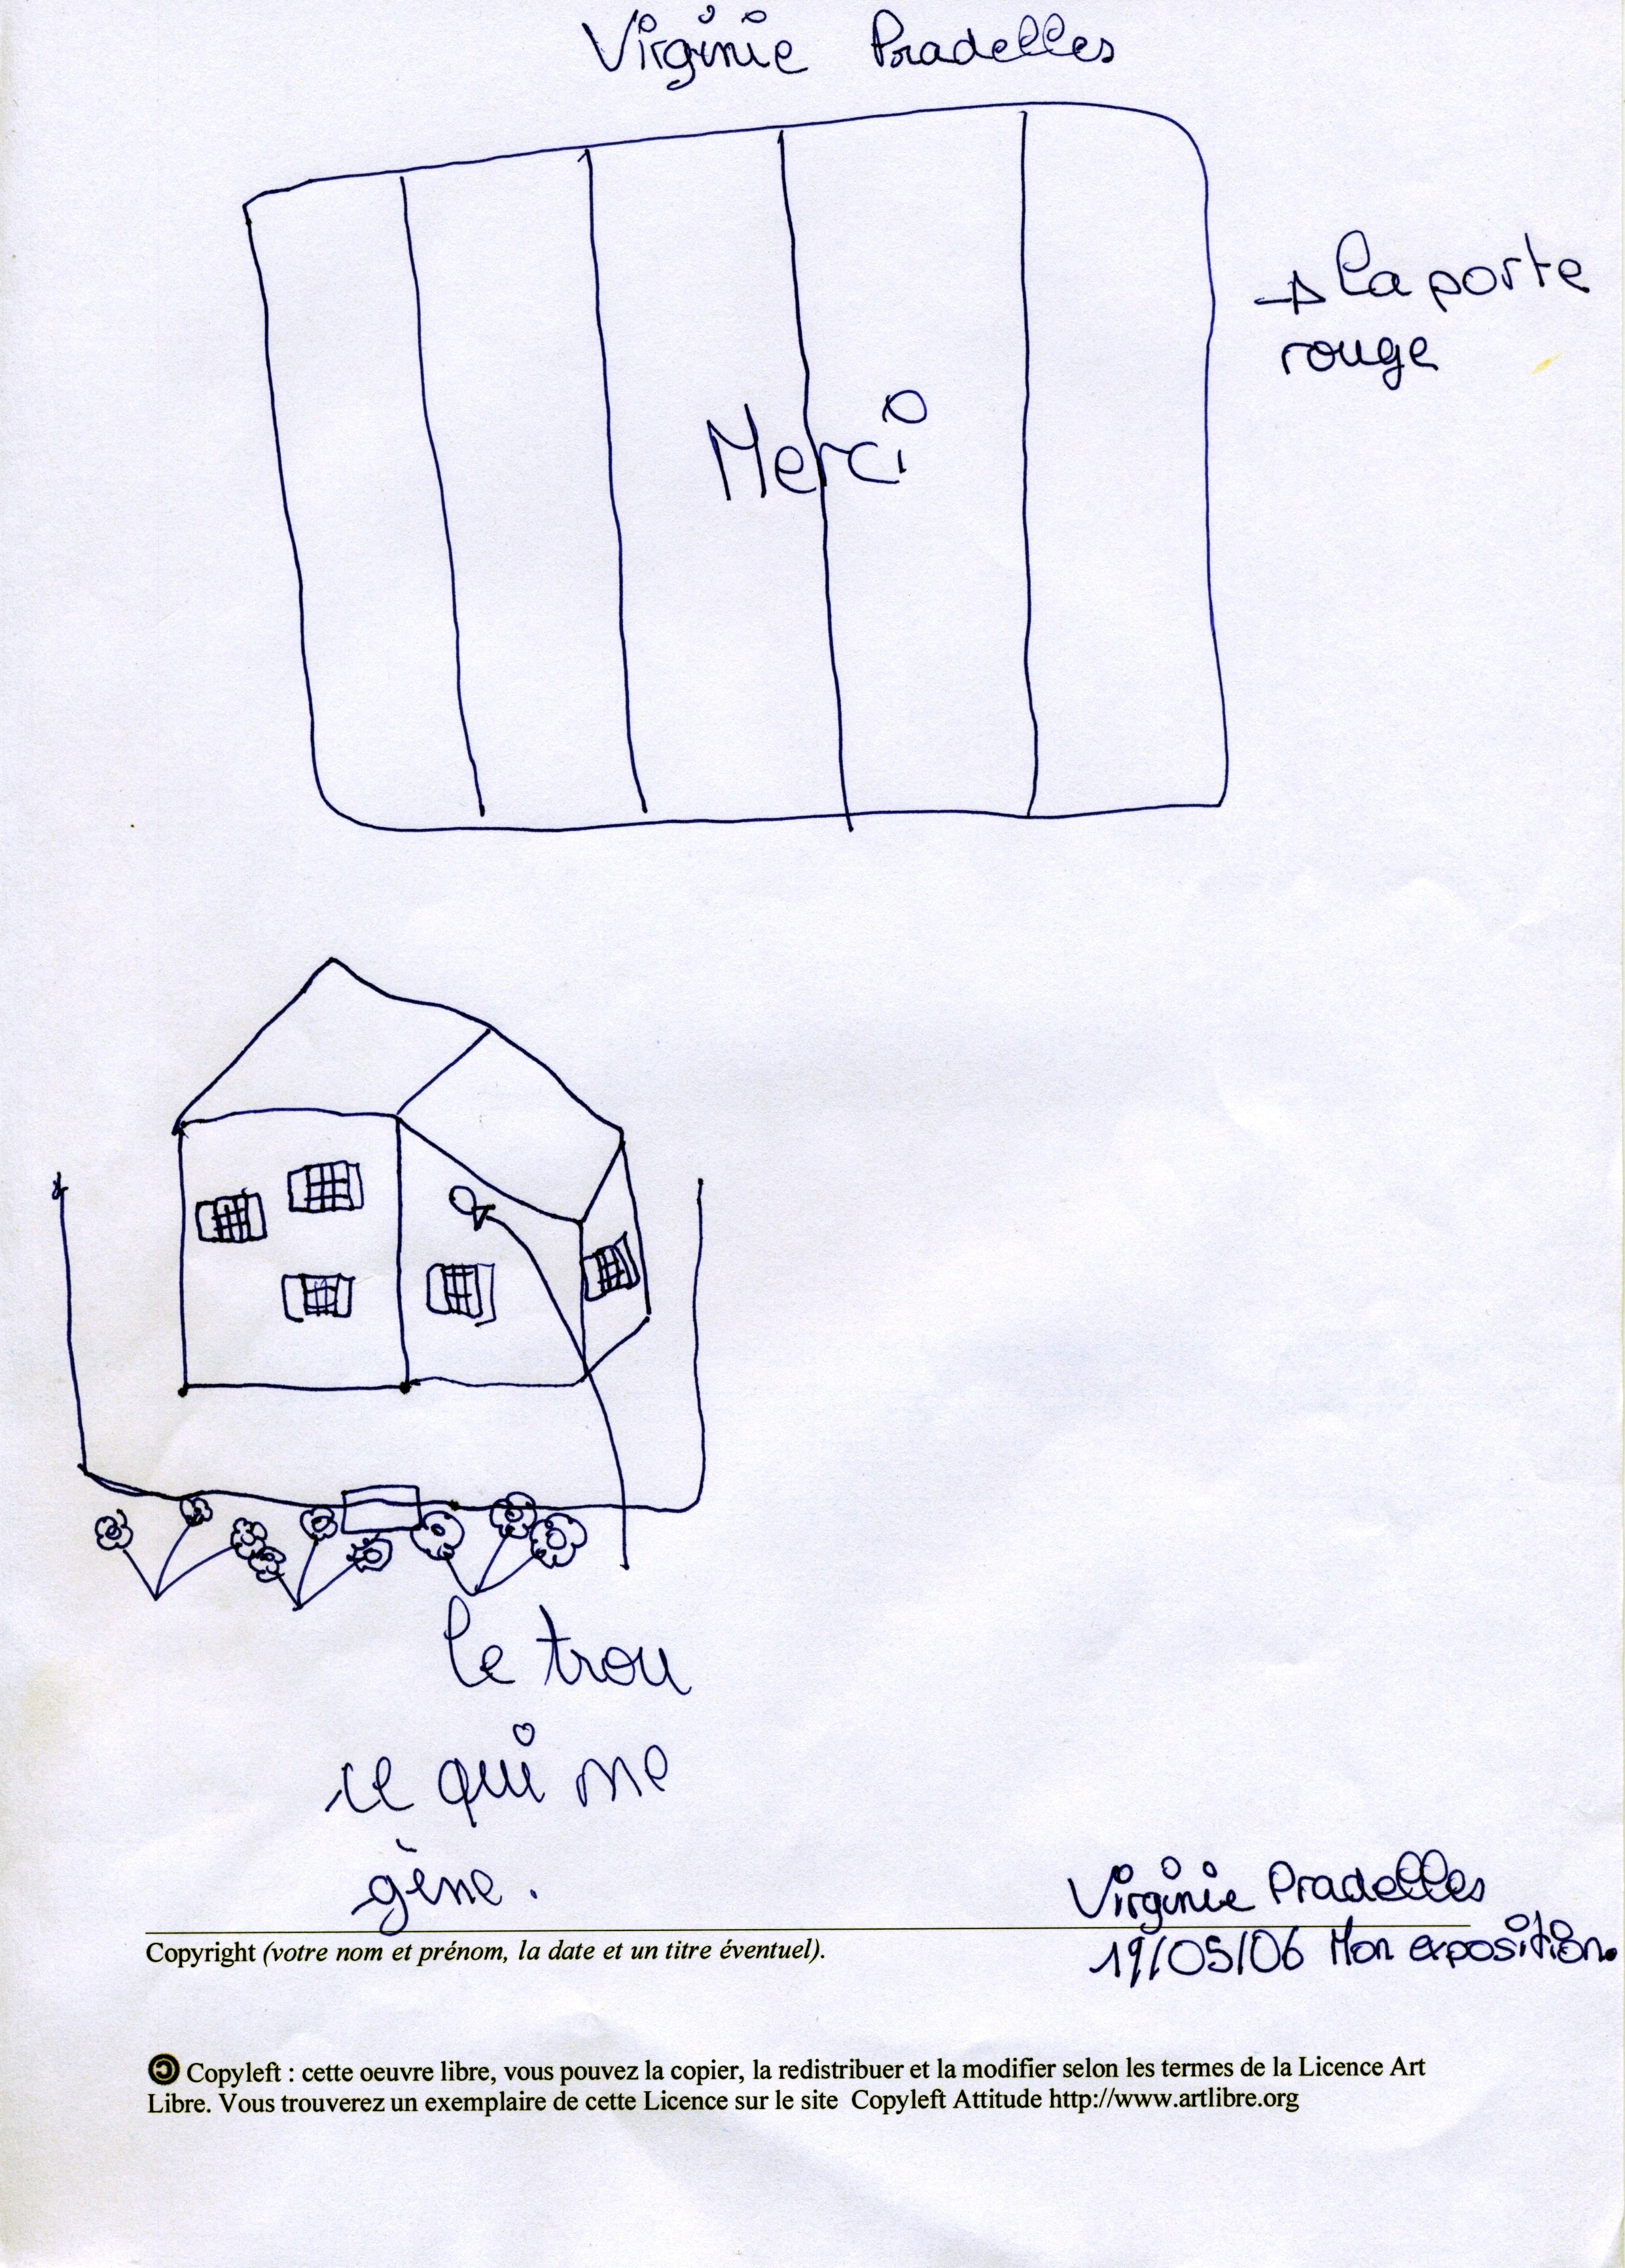 Virginie Pradelles
→ la porte
rouge
Merci
le trou
ce qui me
gène.
Virginie Pradelles
19/05/06 Mon exposition.
Copyright (votre nom et prénom, la date et un titre éventuel).
Copyleft : cette oeuvre libre, vous pouvez la copier, la redistribuer et la modifier selon les termes de la Licence Art
Libre. Vous trouverez un exemplaire de cette Licence sur le site Copyleft Attitude http://www.artlibre.org